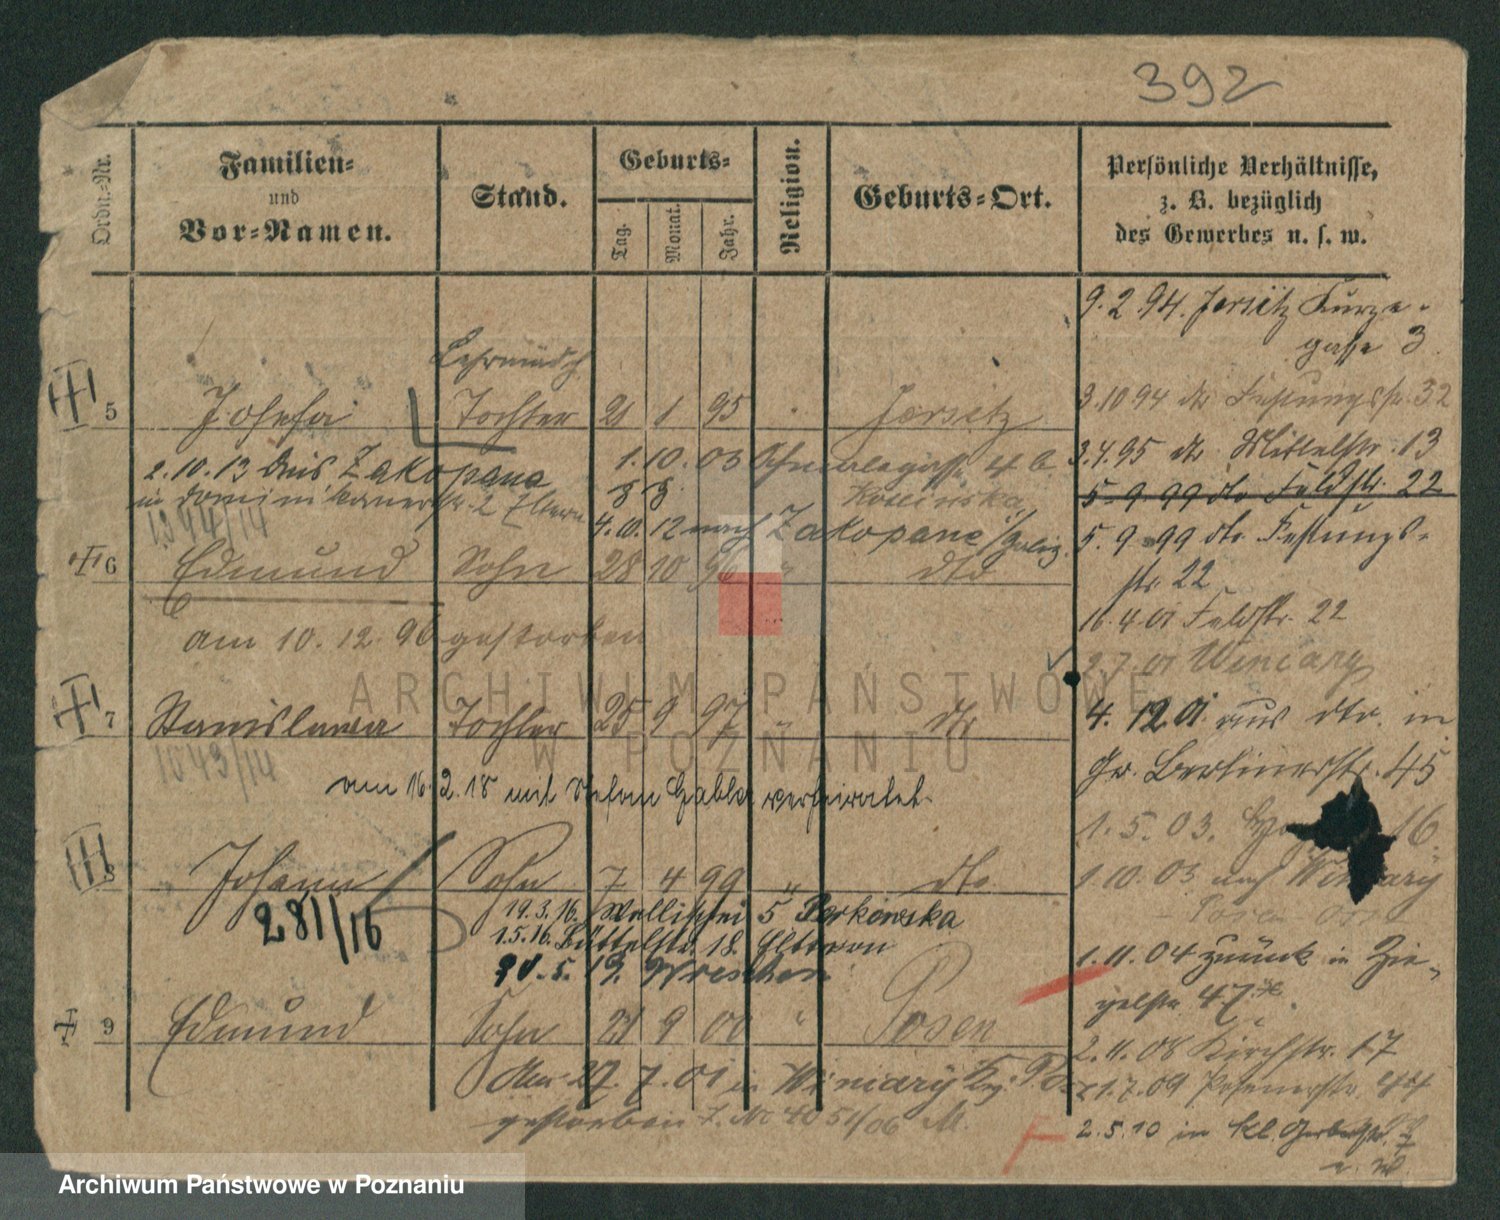 392
Ordn.-Nr.
Familien-
und
Vor-Namen.
Stand.
Geburts-
Tag.
Monat.
Jahr.
Religion.
Geburts-Ort.
Persönliche Verhältnisse,
z. B. bezüglich
des Gewerbes u. s. w.
9. 2. 94. Jersitz Kurze-
gasse 3
3.10.94 dto Festungsstr. 32
3.4.95 dto Mittelstr. 13
5.9.99 dto Feldstr. 22
5.9.99 dto Festungs-
str. 22
16.4.01 Feldstr. 22
2.7.01 Winiary
4.12.01. aus dto. in
Gr. Berlinerstr. 45
1.5.03. 16.
1.10.03 nach Winiary
Posen Ost
1.11.04 zurück in Zie-
gelstr. 47
2.11.08 Kirchstr. 17
1.7.09 Posenerstr. 44
2.5.10 in Kl. Gerberstr.
5 Josefa Tochter 21 1 95 " Jersitz
2.10.13 aus Zakopane
in Dominikanerstr. 2 Eltern
1.10.03 4 b.
Kosinska
4.10.12 nach Zakopane i/Galiz.
1344/14
6 Edmund Sohn 28 10 96 " dto
am 10.12.96 gestorben
7 Stanislawa Tochter 25 9 97 " dto
1043/14
am 16.2.18 mit Stefan Gabler verheiratet.
8 Johann Sohn 7 4 99 " dto
281/16
19.3.16. Wallischei 5 Perkowska
1.5.16. Büttelstr. 18. Elteren
5. 19. Wreschen
9 Edmund Sohn 21 9 00 " Posen
Am 27.7.01 in Winiary Krs. Pos.
gestorben J. No 4051/06 M.
ARCHIWUM PAŃSTWOWE
W POZNANIU
Archiwum Państwowe w Poznaniu